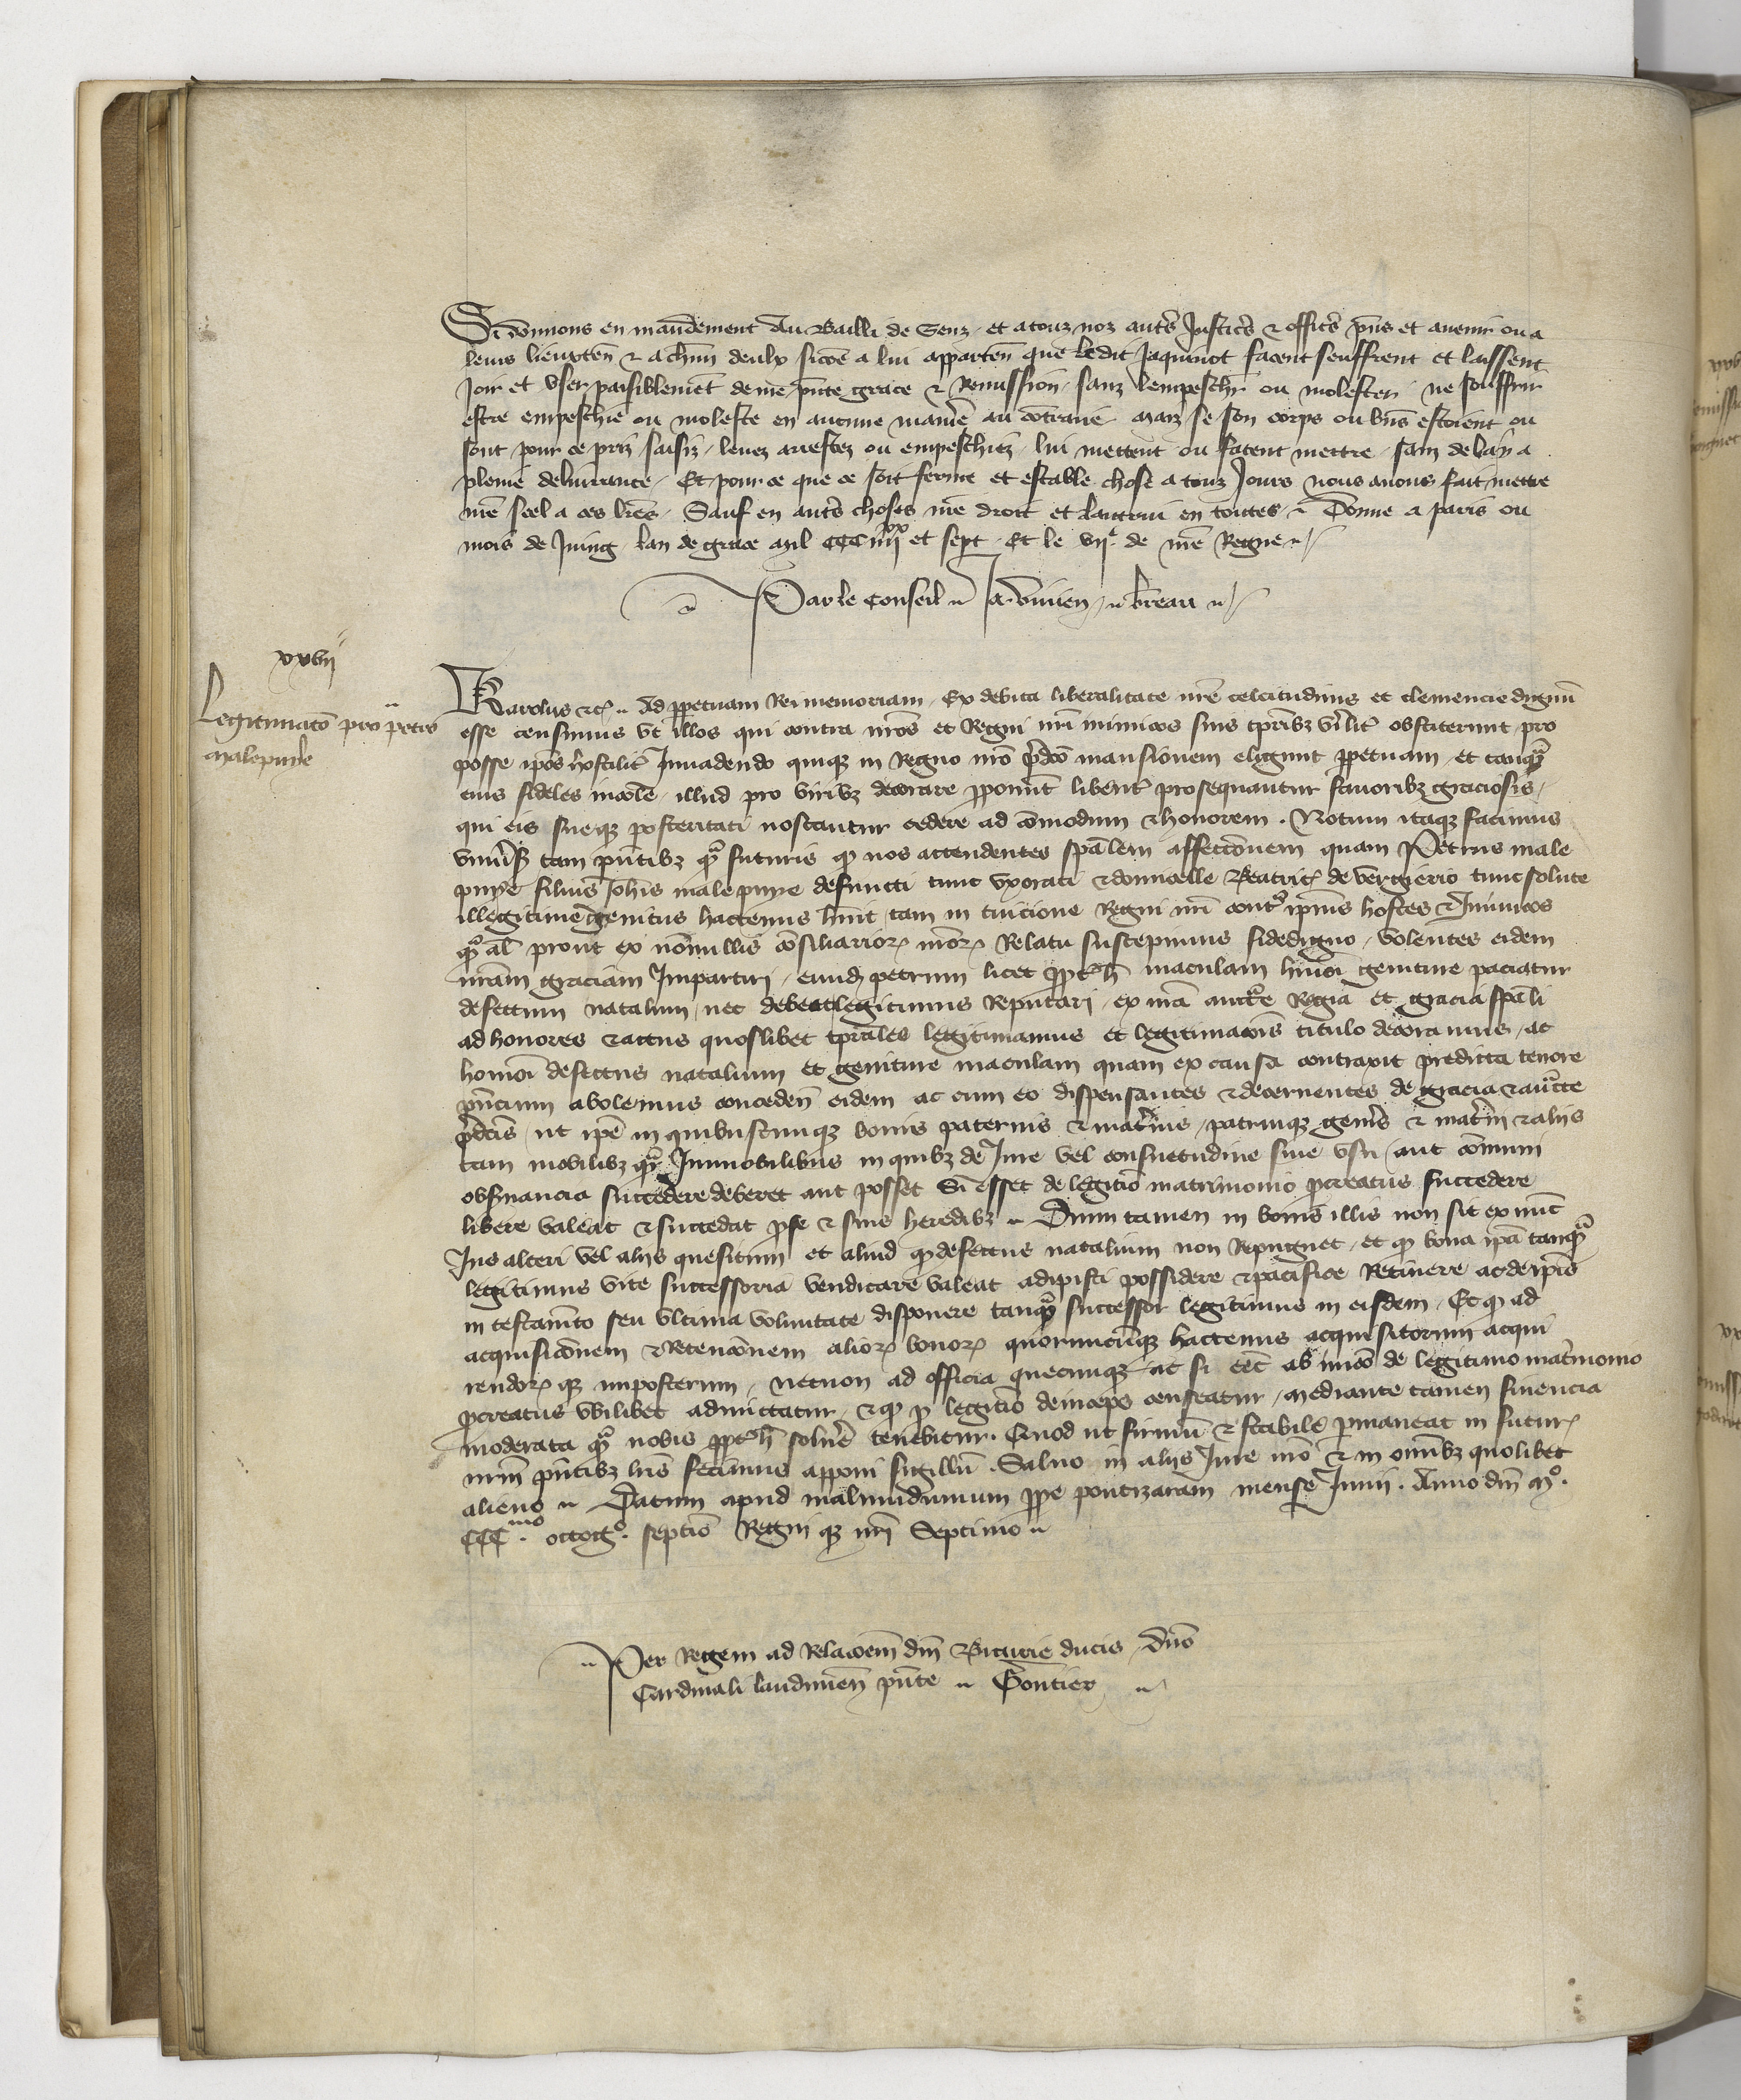 Si donnons en mandement Au Bailli de Senz et a touz noz autrs Justicrs & officrs pns et avenir ou a
leurs lieuxten & a chun deulx sicoe a lui apparten que ledit Jaquinot facent seuffrent et laissent
Joir et user paisiblemet de nre pnte grace & Remission sanz lempeschr ou molester ne souffrir
estre empeschie ou moleste en aucune manie au contraire maiz se son corps ou bns estoient ou
sont pour ce priz saisiz levez arrestez ou empeschiez lui mettent ou facent mettre sanz delay a
pleine delivrance Et pour ce que ce soit ferme et estable chose a touz Jours nous avons fait mettre
nre scel a ces lres Sauf en autrs choses nre droit et lautrui en toutes Donne a paris ou
mois de Juing lan de grace mil CCC iiiixx et sept Et le vije de nre Regne
Par le Conseil Ja. Vivien breau
xxvij
Legitimaco pro petro
malepuye
Karolus etc Ad ppetuam Rei memoriam Ex debita liberalitate nre celcitudinis et clemencie dignum
esse censimus ut illos qui contra nros et Regni nri inimicos suis tpribz virilit obstiterunt pro
posse ipos hostilit Invadendo quique in Regno nro pdco mansionem eligunt ppetuam et tanqua
eius fideles incole illud pro viribz decorare pponunt libent prosequantur favoribz graciosis
qui eis sueqz posteritati noscantur cedere ad comodum & honorem Notum itaqz facimus
univsis tam pntibz qua futuris qd nos attendentes spalem affectionem quam Petrus male
puye filius Johis malepuye defuncti tunc uxorati & domicelle Beatric de vergerio tunc solute
illegitime genitus hactenus huit tam in tuicione Regni nri cont ipius hostes & Inimicos
qua al prout ex nonnullis consiliarior nror Relatu suscepimus fidedigno volentes eidem
nram graciam Impartiri eund petrum licet ppth maculam hmoi geniture paciatur
defectum natalium nec debeat legitimus Reputari ex nra auctte Regia et gracia spali
ad honores & actus quoslibet tprales legitimamus et legitimacois titulo decoramus ac
homoi defectus natalium et geniture maculam quam ex causa contraxit predicta tenore
pncium abolemus conceden eidem ac cum eo dispensantes & decernentes de gracia & auctte
pdcis ut ipe in quibuscunqz bonis paternis & maternis patriuqz genis & matrni & alijs
tam mobilibz qua Immobilibus in quibz de Jure vel consuetudine sive usu aut comuni
obsvancia succedere deberet aut posset Si esset de legitio matrimonio pcreatus succedere
libere valeat & succedat p se & suis heredibz Dum tamen in bonis illis non sit ex nunc
Jus alteri vel alijs quesitum et aliud qd defectus natalium non Repugnet et qd bona ipa tanqua
legitimus vite successoria vendicare valeat adipisci possidere & pacifice Retinere ac de ipis
in testamto seu ultima voluntate disponere tanqua successor legitimus in eisdem Et qd ad
acquisiconem & Retenconem alior bonor quorumcunqz hactenus acquisitorum acqui
rendor qz imposterum necnon ad officia quecunqz ac si eet ab inico de legitimo matrimonio
pcreatus ubilibet admittatur & qd p legitio deinceps censeatur mediante tamen financia
moderata qua nobis ppth solve tenebitur Quod ut firmu & stabile pmaneat in futur
nrm pntibz lris fecimus apponi sigillu Salvo in alijs Jure nro & in omibz quolibet
alieno Datum apud malumdumum ppe pontizaram mense Junii Anno dni mo
CCCmo octogo septio Regni qz nri Septimo
Per Regem ad Relacoem dni Biturie ducis dno
Cardinali laudunen pnte Gontier